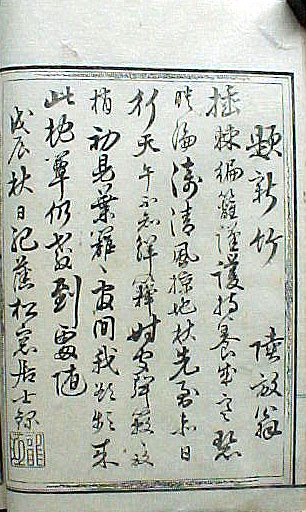 題新竹 陸放翁
插棘編籬謹護持養成寒碧
映淪漪清風掠地秋先到赤日
行天午不知解籜時聞聲簌〻放
梢初見葉離〻官閒我欲頻來
此枕簟仍教到處隨
戊辰秋日 松窗居士錄